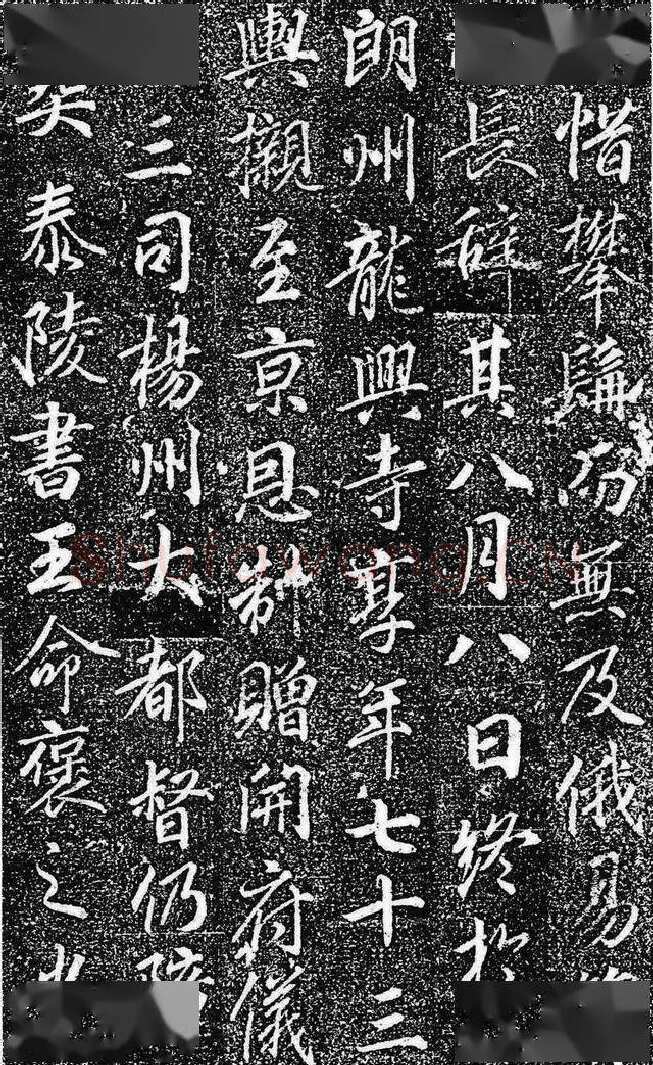 惜攀髯而無及俄易
長辭其八月八日終於
朗州龍興寺享年七十三
輿櫬至京恩制贈開府儀
三司楊州大都督仍陪
葬泰陵書王命褒之也